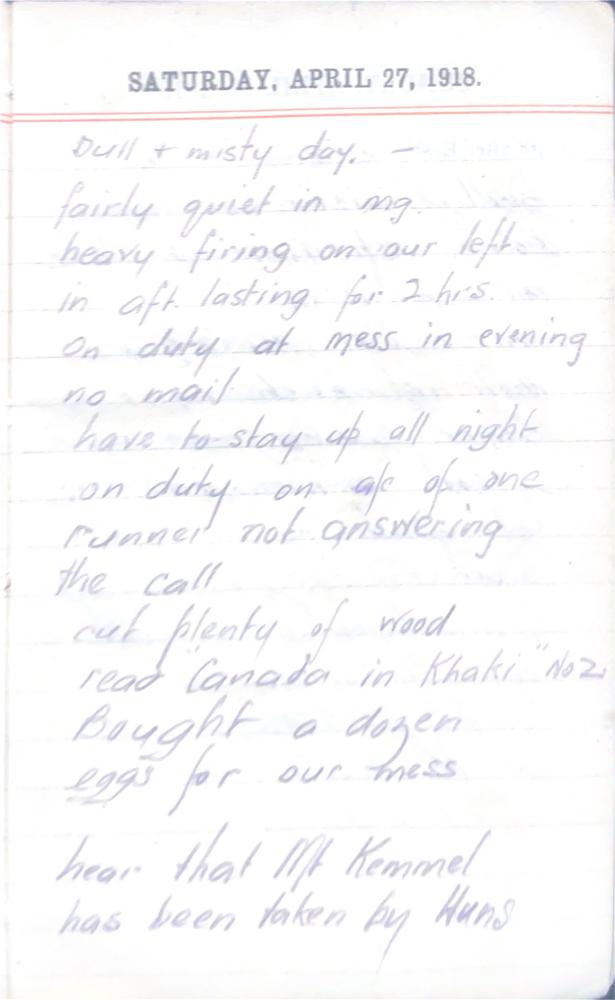 SATURDAY, APRIL 27, 1918.
Dull + misty day. –
fairly quiet in mg.
heavy firing on our left.
in aft. lasting for 2 hrs.
on duty at mess in evening
no mail
have to stay up all night
on duty on a/c of one
runner not answering
the call
cut plenty of wood
read "Canada in Khaki" No 2.
Bought a dozen
eggs for our mess
hear that Mt Kemmel
has been taken by Huns